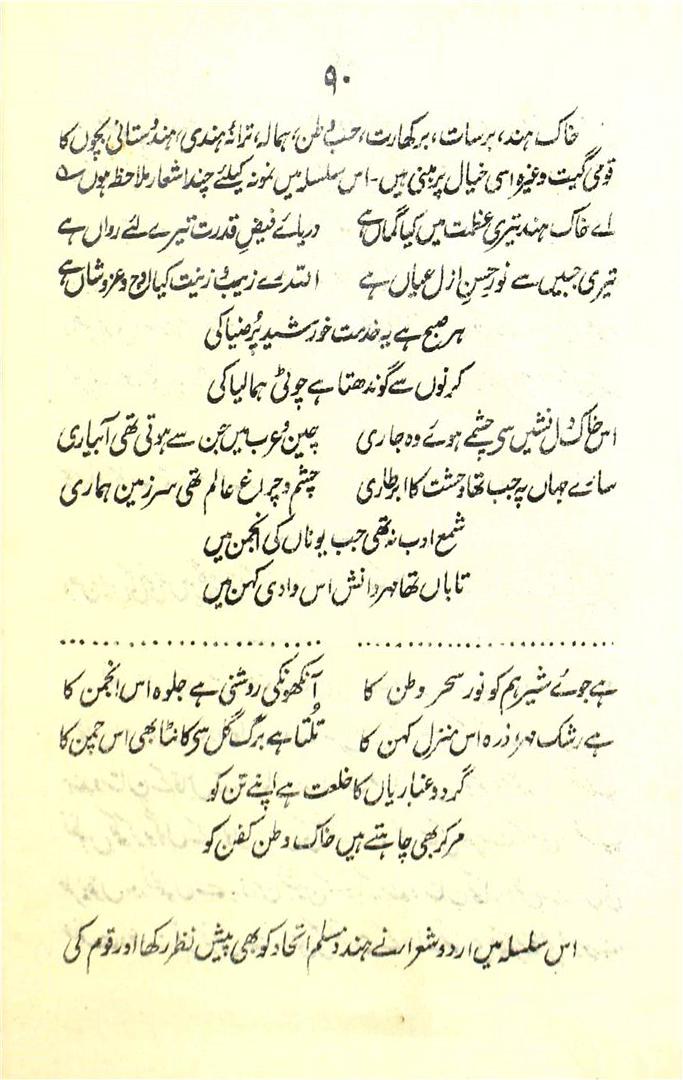 ۹۰
خاک ہند، برسات، برکھارت، حب وطن، ہمالہ، ترانۂ ہندی، ہندوستانی بچوں کا
قومی گیت وغیرہ اسی خیال پر مبنی ہیں۔ اس سلسلہ میں نمونہ کیلئے چند اشعار ملاحظہ ہوں ؎
اے خاک ہند تیری عظمت میں کیا گماں ہے دریائے فیض قدرت تیرے لئے رواں ہے
تیری جبیں سے نور حسن ازل عیاں ہے اللہ رے زیب و زینت کیا اوج و عز و شاں ہے
ہر صبح ہے یہ خدمت خورشید پُر ضیا کی
کرنوں سے گوندھتا ہے چوٹی ہمالیا کی
اس خاک دل نشیں سے چشمے ہوئے وہ جاری چین و عرب میں جن سے ہوتی تھی آبیاری
سارے جہاں پہ جب تھا وحشت کا ابر طاری چشم و چراغ عالم تھی سرزمین ہماری
شمع ادب نہ تھی جب یوناں کی انجمن میں
تاباں تھا مہر دانش اس وادی کہن میں
........................ ........................
ہے جوئے شیر ہم کو نور سحر وطن کا آنکھونکی روشنی ہے جلوہ اس انجمن کا
ہے رشک مہر ذرہ اس منزل کہن کا تُلتا ہے برگ گل سے کانٹا بھی اس چمن کا
گرد و غبار یاں کا خلعت ہے اپنے تن کو
مرکر بھی چاہتے ہیں خاک وطن کفن کو
اس سلسلہ میں اردو شعراء نے ہندو مسلم اتحاد کو بھی پیش نظر رکھا اور قوم کی